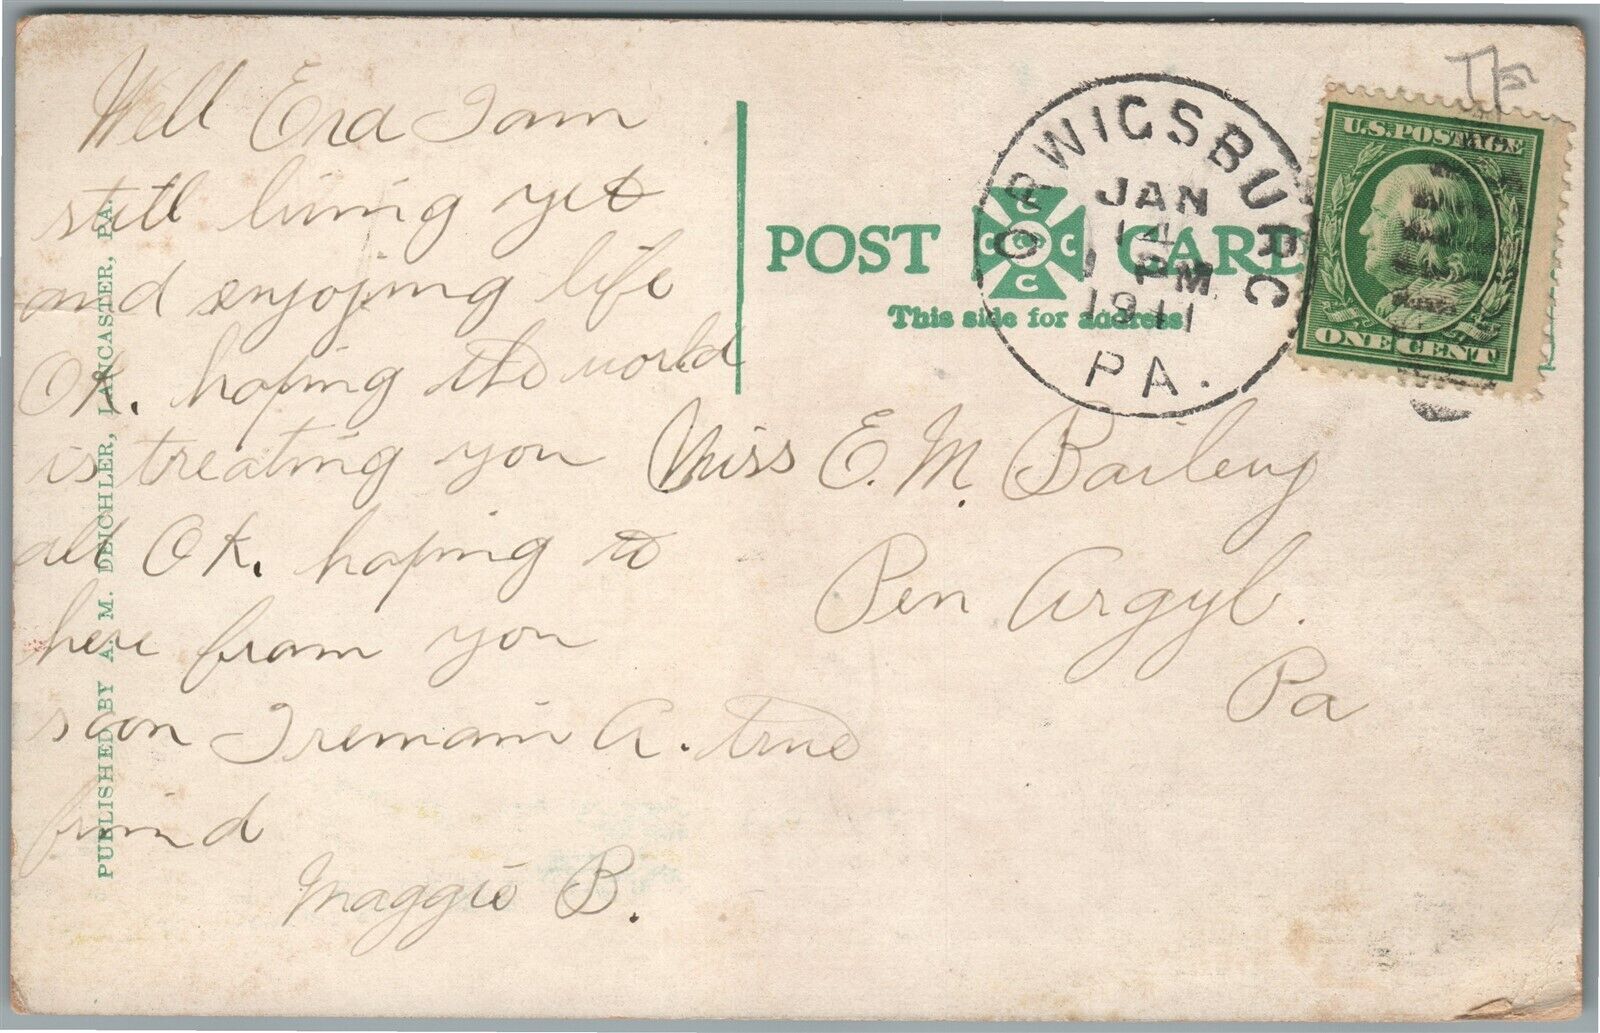 Well Era I am
still living yet
and enjoying life
OK. hoping the world
is treating you
all OK. hoping to
here from you
soon I remain A. true
frind
Maggie B.
PUBLISHED BY A. M. DEICHLER, LANCASTER, PA.
POST CARD
C C C C C
This side for address
ORWIGSBURG
JAN
14
PM
1911
PA.
U.S. POSTAGE
ONE CENT
Miss E. M. Baileuy
Pen Argyl.
Pa